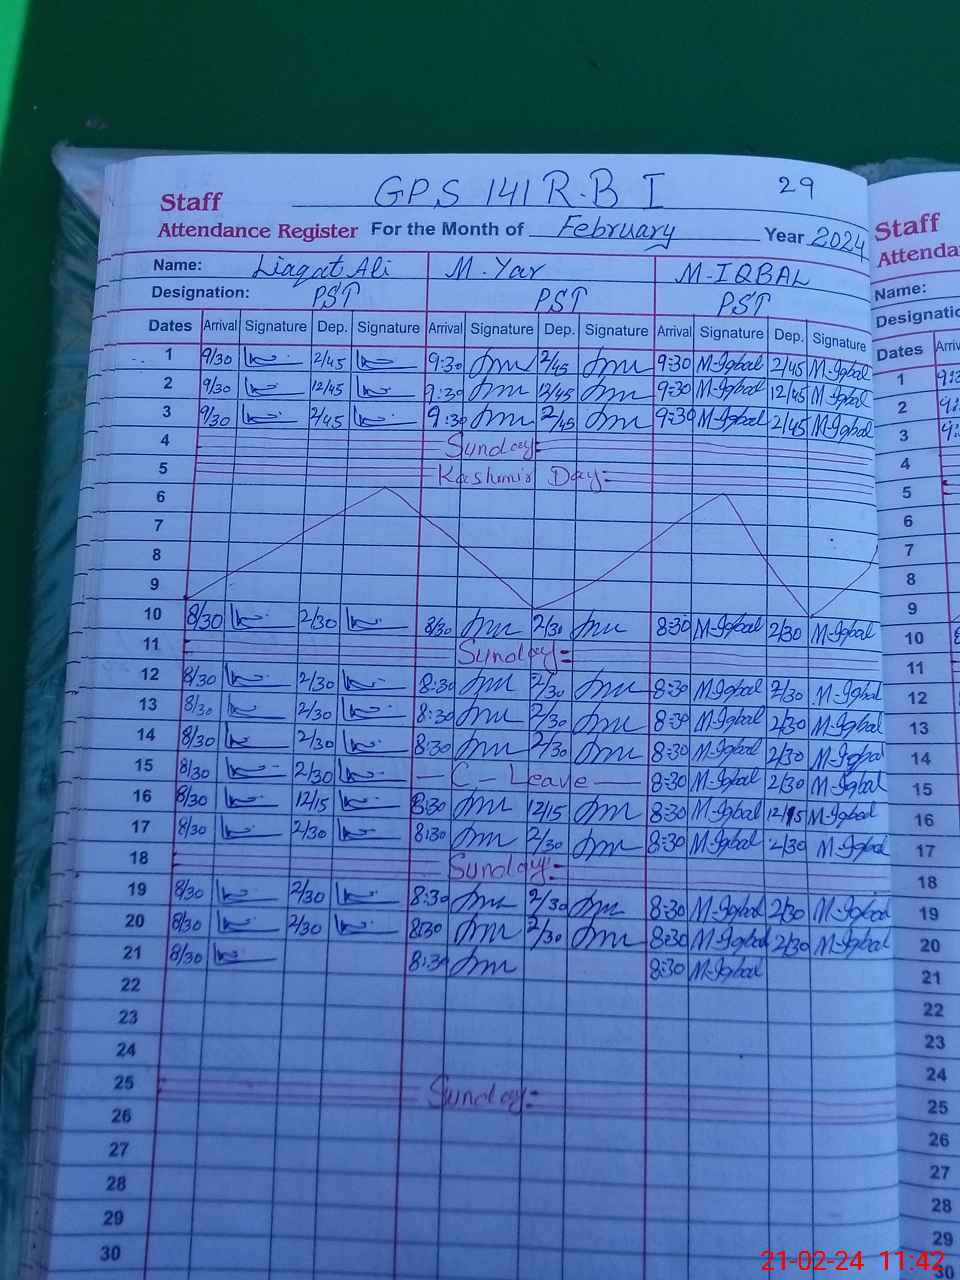 GPS 141 R.B I 29
Staff
Attendance Register For the Month of February Year 2024
Name: Liaqat Ali M. Yar M-IQBAL
Designation: PST PST PST
Dates Arrival Signature Dep. Signature Arrival Signature Dep. Signature Arrival Signature Dep. Signature
1 9/30 2/45 9:30 2/45 9:30 M-Iqbal 2/45 M-Iqbal
2 9/30 12/45 9:30 12/45 9:30 M-Iqbal 12/45 M-Iqbal
3 9/30 2/45 9:30 2/45 9:30 M-Iqbal 2/45 M-Iqbal
4 Sunday
5 Kashmir Day
6
7
8
9
10 8/30 2/30 8/30 2/30 8:30 M-Iqbal 2/30 M-Iqbal
11 Sunday
12 8/30 2/30 8:30 2/30 8:30 M-Iqbal 2/30 M-Iqbal
13 8/30 2/30 8:30 2/30 8:30 M-Iqbal 2/30 M-Iqbal
14 8/30 2/30 8:30 2/30 8:30 M-Iqbal 2/30 M-Iqbal
15 8/30 2/30 — C - Leave — 8:30 M-Iqbal 2/30 M-Iqbal
16 8/30 12/15 8:30 12/15 8:30 M-Iqbal 12/15 M-Iqbal
17 8/30 2/30 8:30 2/30 8:30 M-Iqbal 2/30 M-Iqbal
18 Sunday
19 8/30 2/30 8:30 2/30 8:30 M-Iqbal 2/30 M-Iqbal
20 8/30 2/30 8:30 2/30 8:30 M-Iqbal 2/30 M-Iqbal
21 8/30 8:30 8:30 M-Iqbal
22
23
24
25 Sunday
26
27
28
29
30
Staff
Name:
Dates
1
2
3
4
5
6
7
8
9
10
11
12
13
14
15
16
17
18
19
20
21
22
23
24
25
26
27
28
29
30
21-02-24 11:42